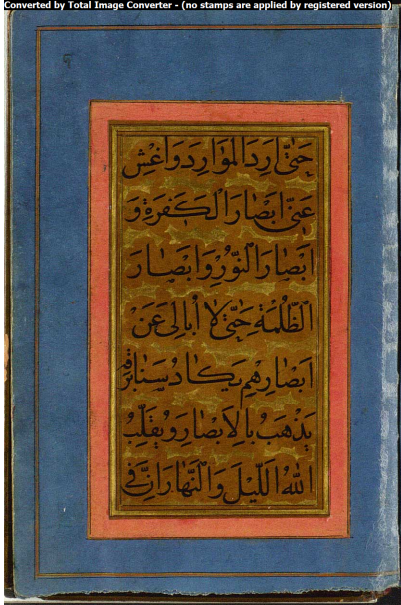 Converted by Total Image Converter - (no stamps are applied by registered version)
حَتّٰى اَرِدَ الْمَوَارِدَ وَاغْشِ
عَنّٖى اَبْصَارَ الْكَفَرَةِ وَ
اَبْصَارَ النُّورِ وَاَبْصَارَ
الظُّلْمَةِ حَتّٰى لَا اُبَالِىَ عَنْ
اَبْصَارِهِمْ يَكَادُ سَنَا بَرْقِهٖ
يَذْهَبُ بِالْاَبْصَارِ وَيُقَلِّبُ
اللّٰهُ الَّيْلَ وَالنَّهَارَ اِنَّ فٖى